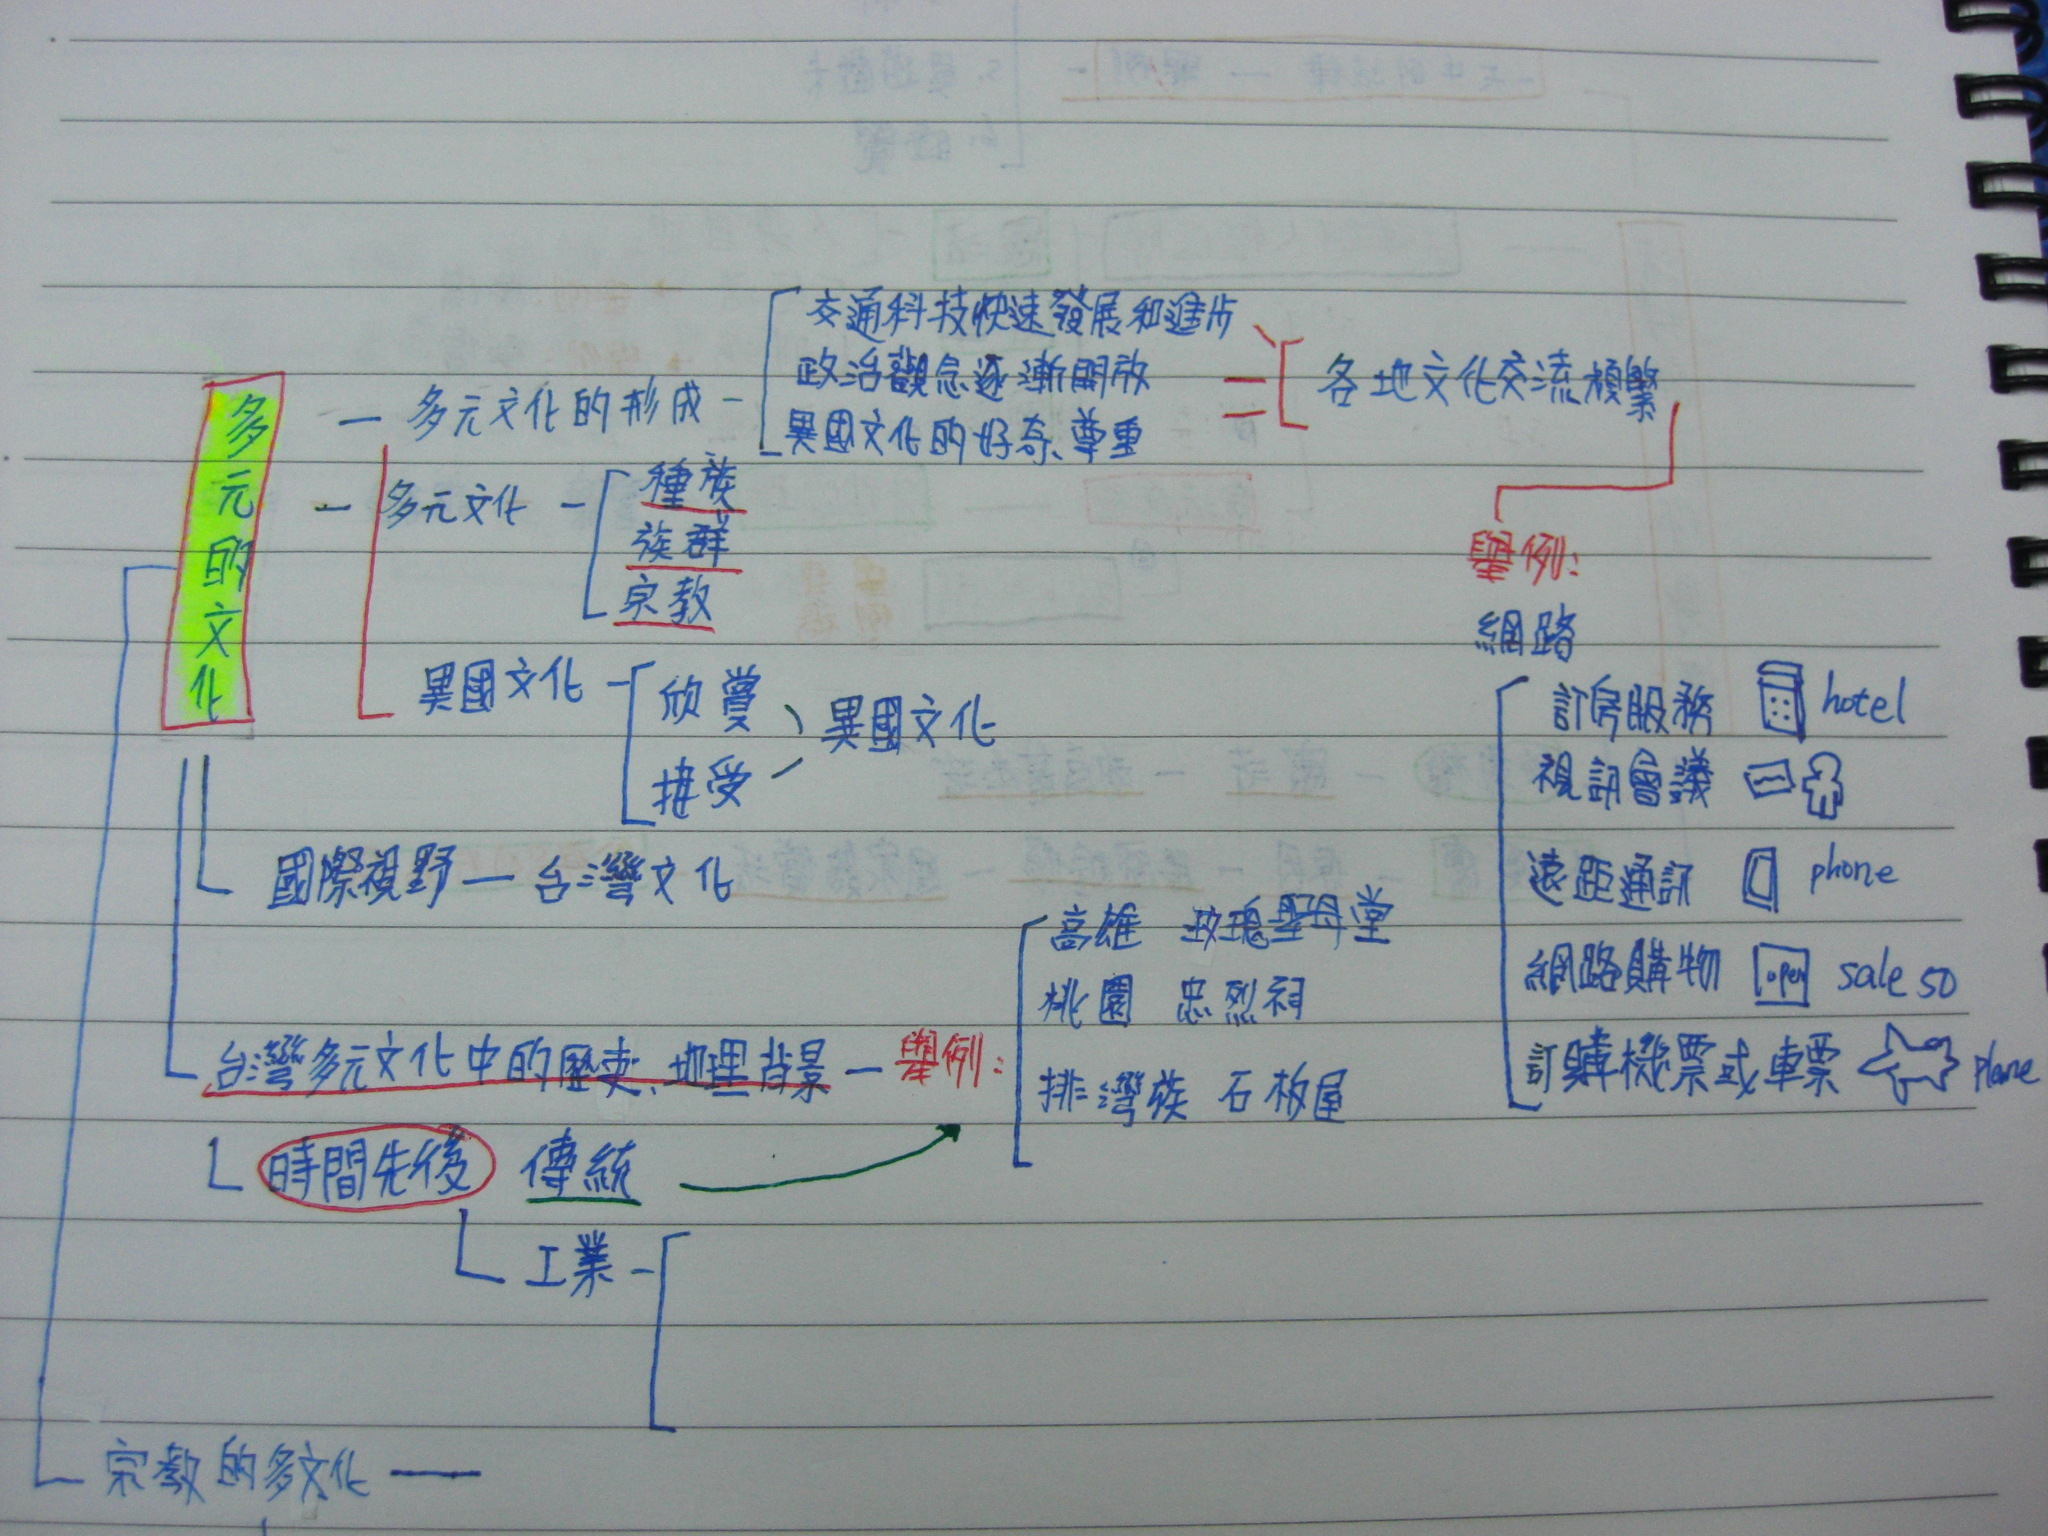 多元的文化
多元文化的形成
交通科技快速發展和進步
政治觀念逐漸開放
異國文化的好奇、尊重
各地文化交流頻繁
舉例:
網路
訂房服務 hotel
視訊會議
遠距通訊 phone
網路購物 open sale 50
訂購機票或車票 plane
多元文化
種族
族群
宗教
異國文化
欣賞
接受
異國文化
國際視野 — 台灣文化
台灣多元文化中的歷史、地理背景 — 舉例:
高雄 玫瑰聖母堂
桃園 忠烈祠
排灣族 石板屋
時間先後 傳統
工業
宗教的多文化